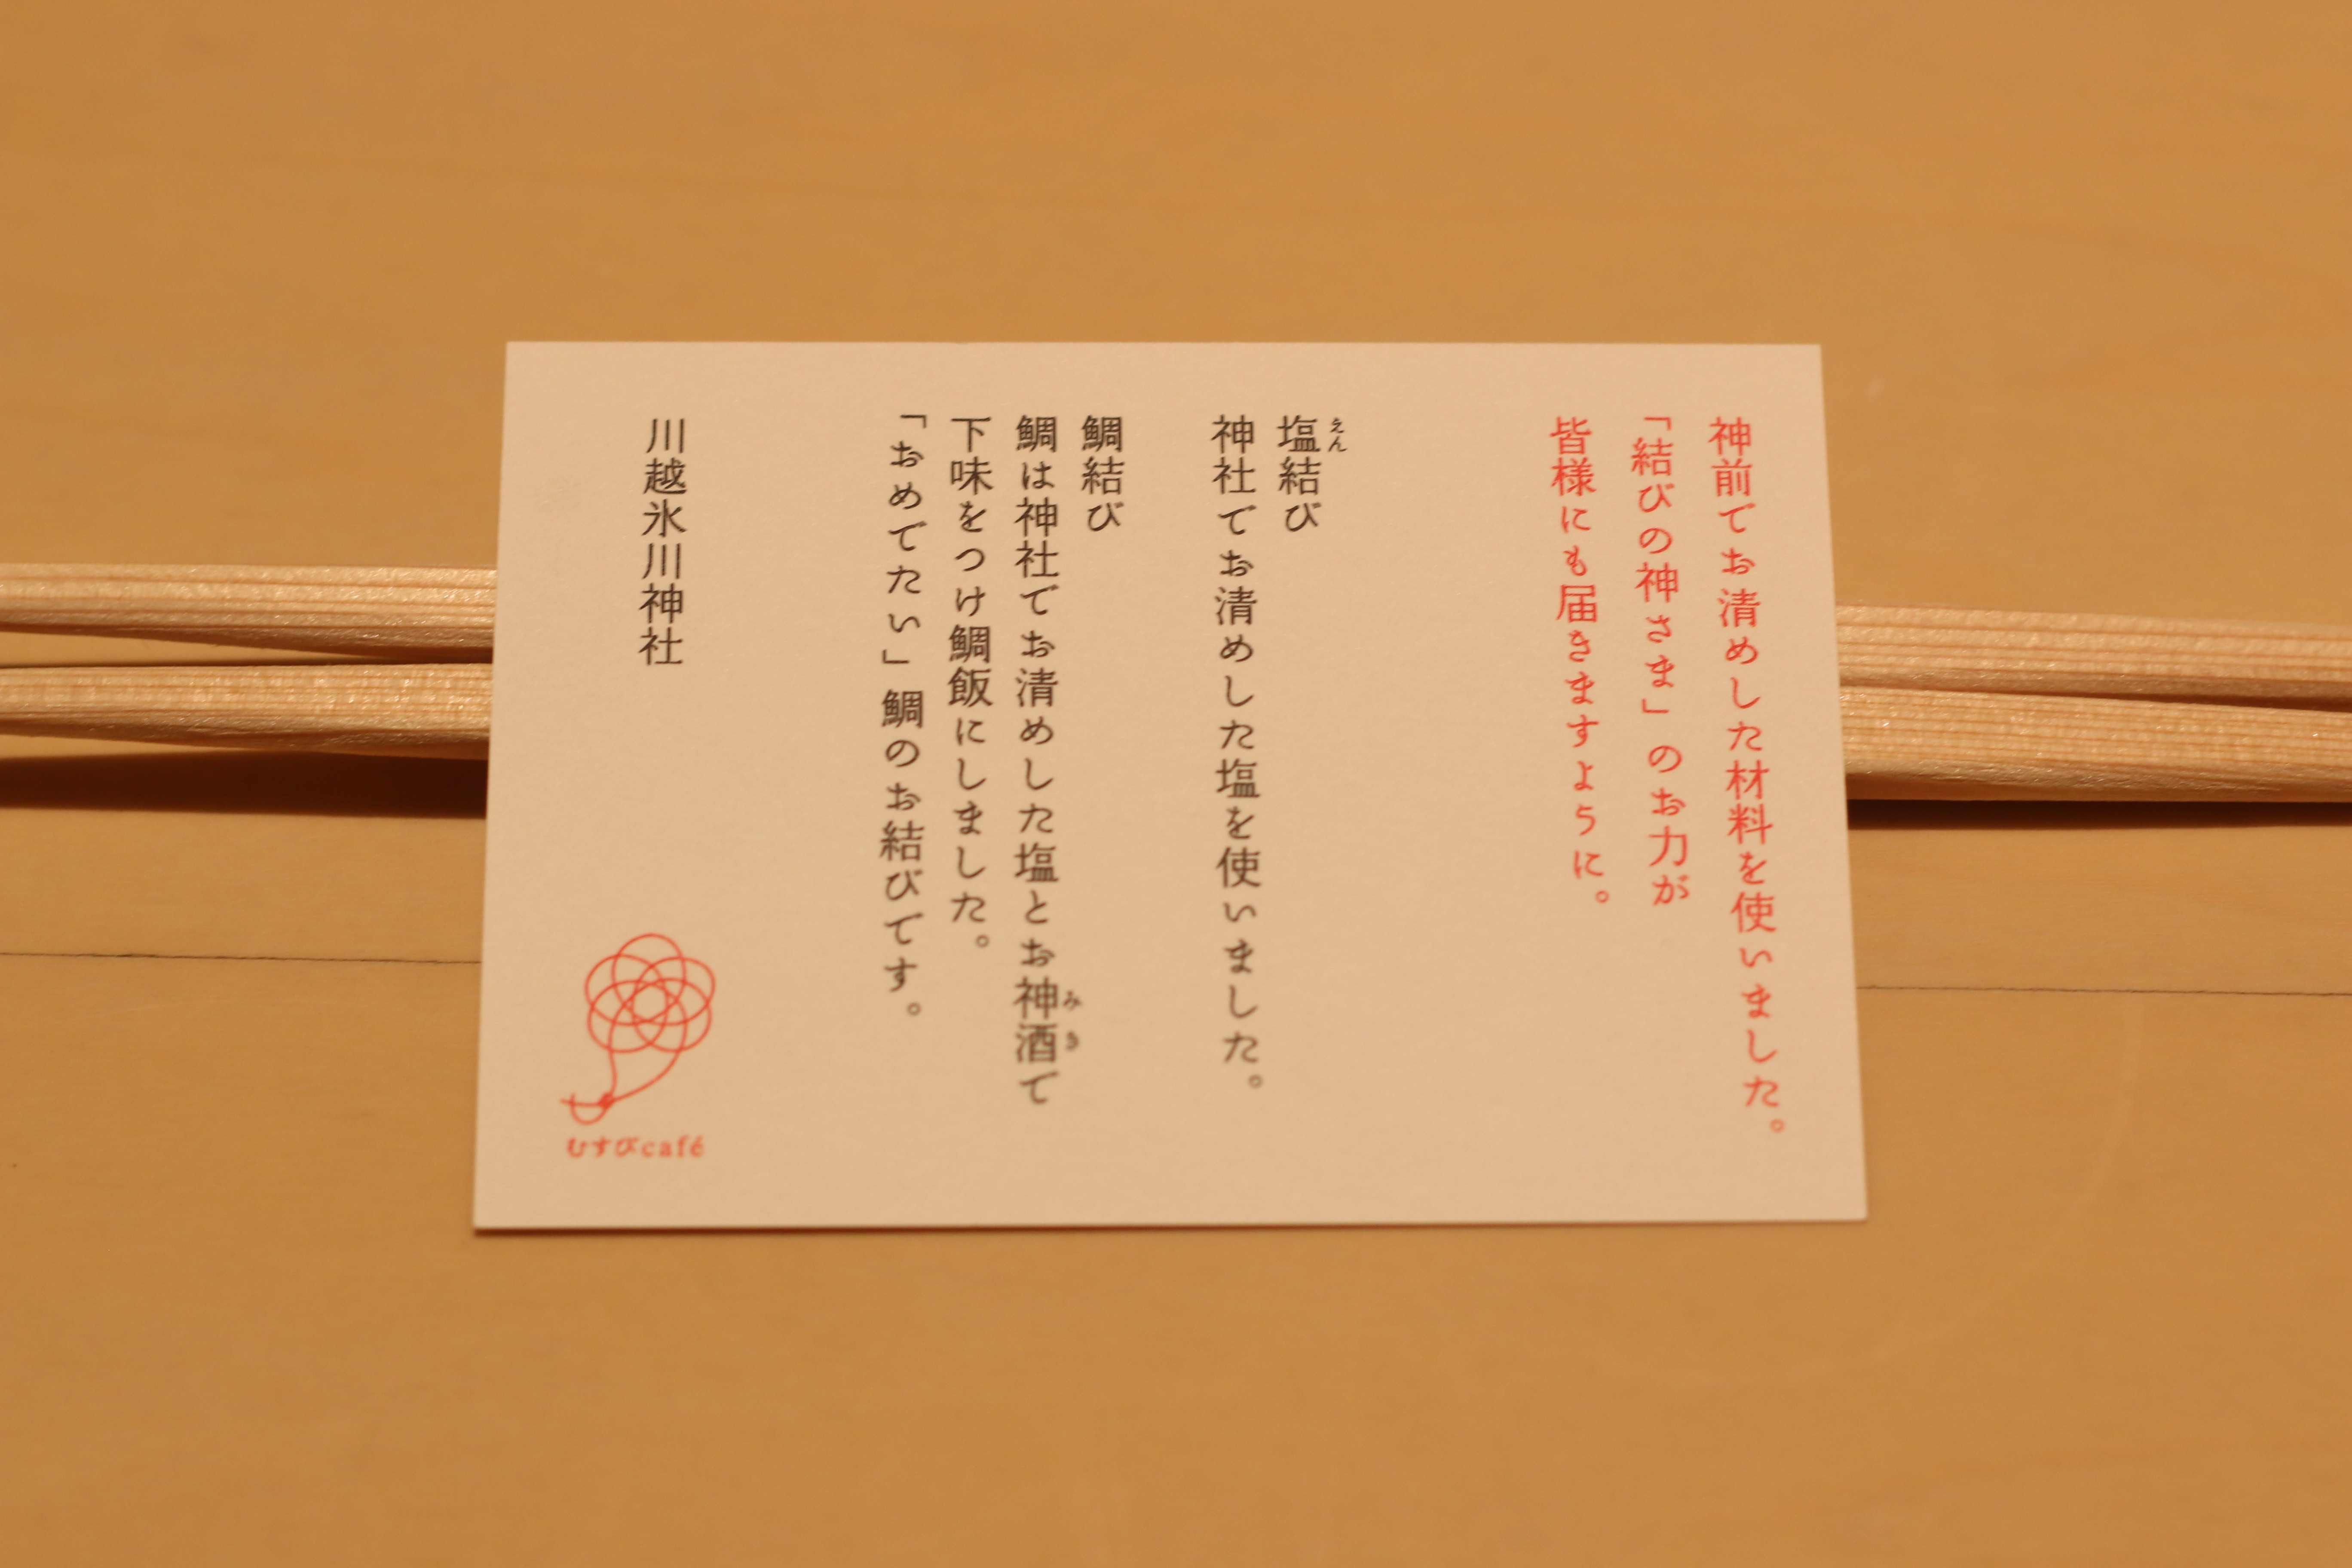 神前でお清めした材料を使いました。
「結びの神さま」のお力が
皆様にも届きますように。
えん
塩結び
神社でお清めした塩を使いました。
鯛結び
鯛は神社でお清めした塩とお神酒で
みき
下味をつけ鯛飯にしました。
「おめでたい」鯛のお結びです。
川越氷川神社
むすびcafé